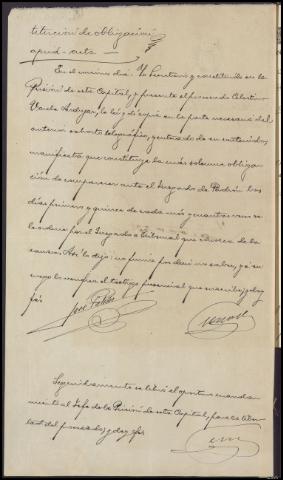 titución de obligación
apud-acta
En el mismo día: Yo Secretario, constituido en la
Prisión de esta Capital, y presente el procesado Celestino
Varela, le leí y dejé en la parte necesaria del
anterior exhorto telegráfico, y enterado de su contenido,
manifiesta que constituye la más solemne obliga-
ción de comparecer ante el Juzgado de Padrón los
días primero y quince de cada mes y cuantas veces se
le ordene por el Juzgado o Tribunal que conozca de la
causa. Así lo dijo: no firma por decir no saber, y a su
ruego lo verifica el testigo presencial que suscribe; y doy
fe:
José
Seguidamente se libró el oportuno manda-
miento al Jefe de la Prisión de esta Capital, para la liber-
tad del procesado; y doy fe: